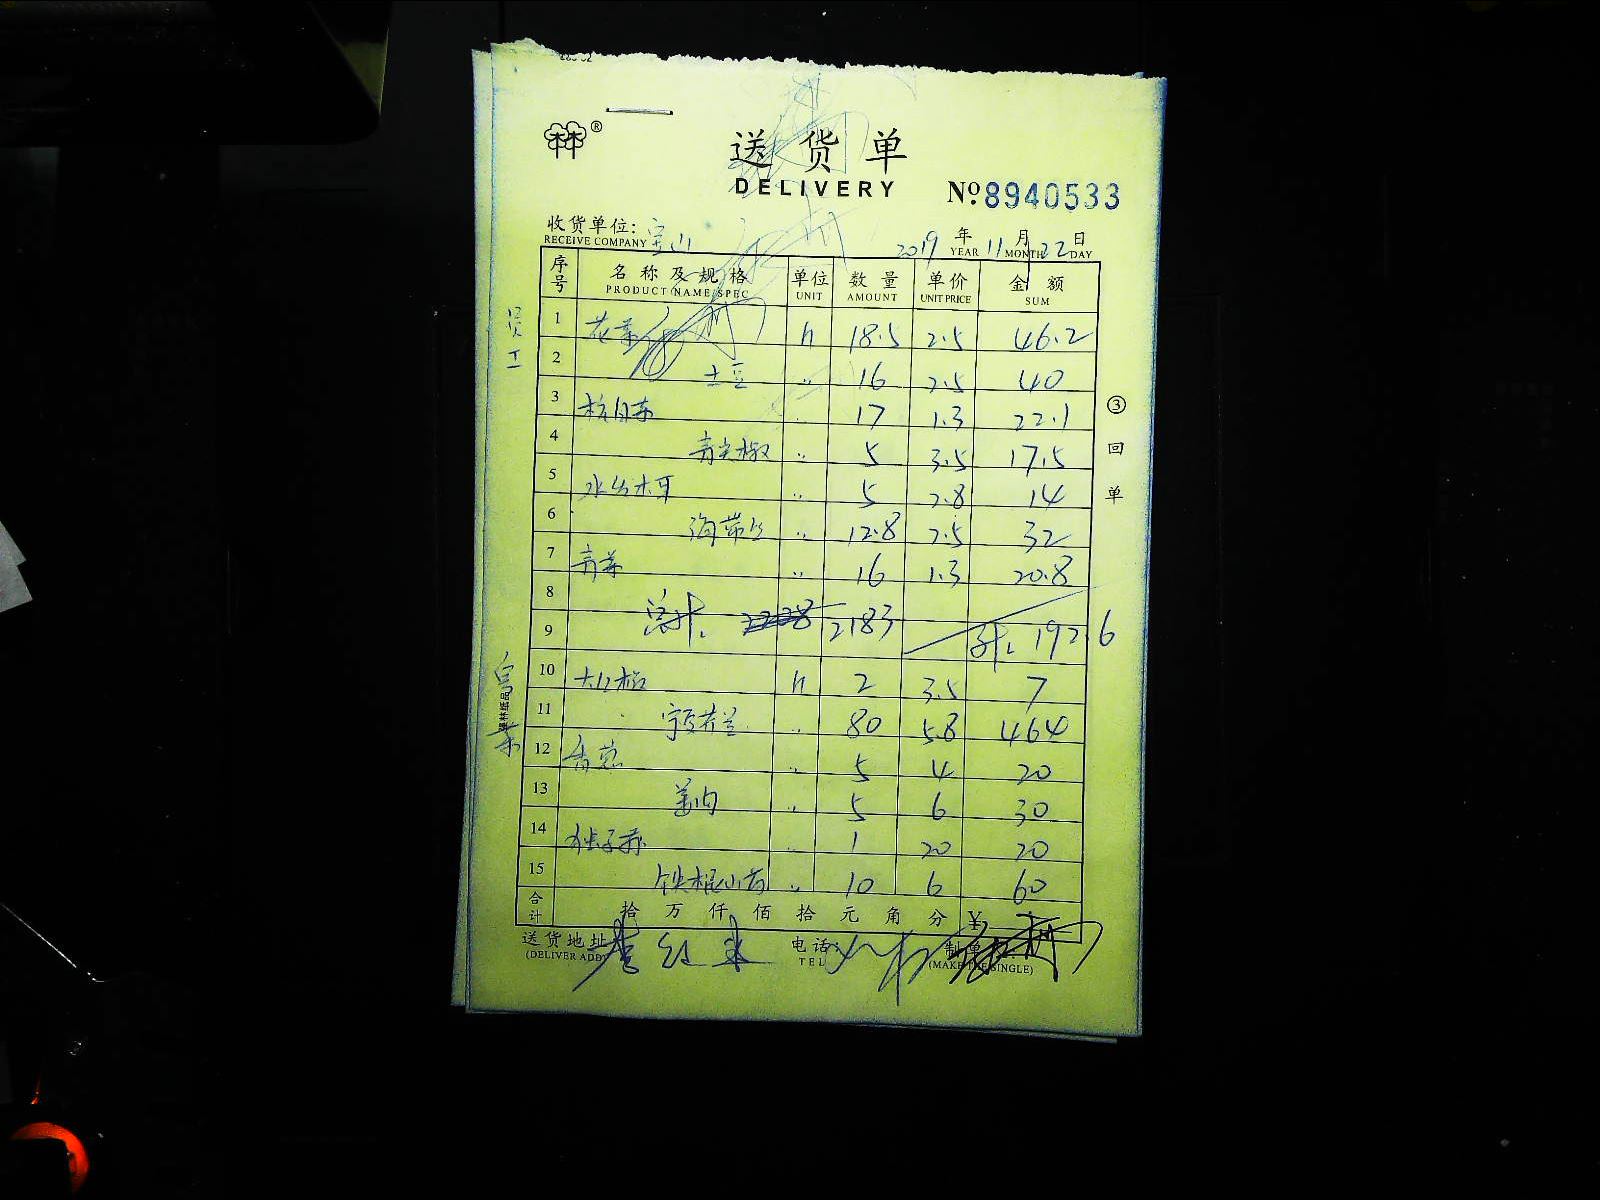 送货单
DELIVERY
№:8940533
收货单位: 宝山
RECEIVE COMPANY
2019 年 11 月 22 日
YEAR MONTH DAY
序号 名称及规格 单位 数量 单价 金额
PRODUCT NAME/SPEC UNIT AMOUNT UNIT PRICE SUM
1 花菜 斤 18.5 2.5 46.2
2 土豆 〃 16 2.5 40
3 17 1.3 22.1
4 青尖椒 〃 5 3.5 17.5
5 水发木耳 〃 5 2.8 14
6 海带丝 〃 12.8 2.5 32
7 青菜 〃 16 1.3 20.8
8
总计: 2183 计: 192.6
9
10 大红椒 斤 2 3.5 7
11 〃 80 5.8 464
12 香葱 〃 5 4 20
13 姜肉 〃 5 6 30
14 独子蒜 〃 1 20 20
15 铁棍山药 〃 10 6 60
合计 拾 万 仟 佰 拾 元 角 分 ¥
送货地址
(DELIVER ADD)
电话:
TEL
制单
(MAKE THE SINGLE)
③回单
员工